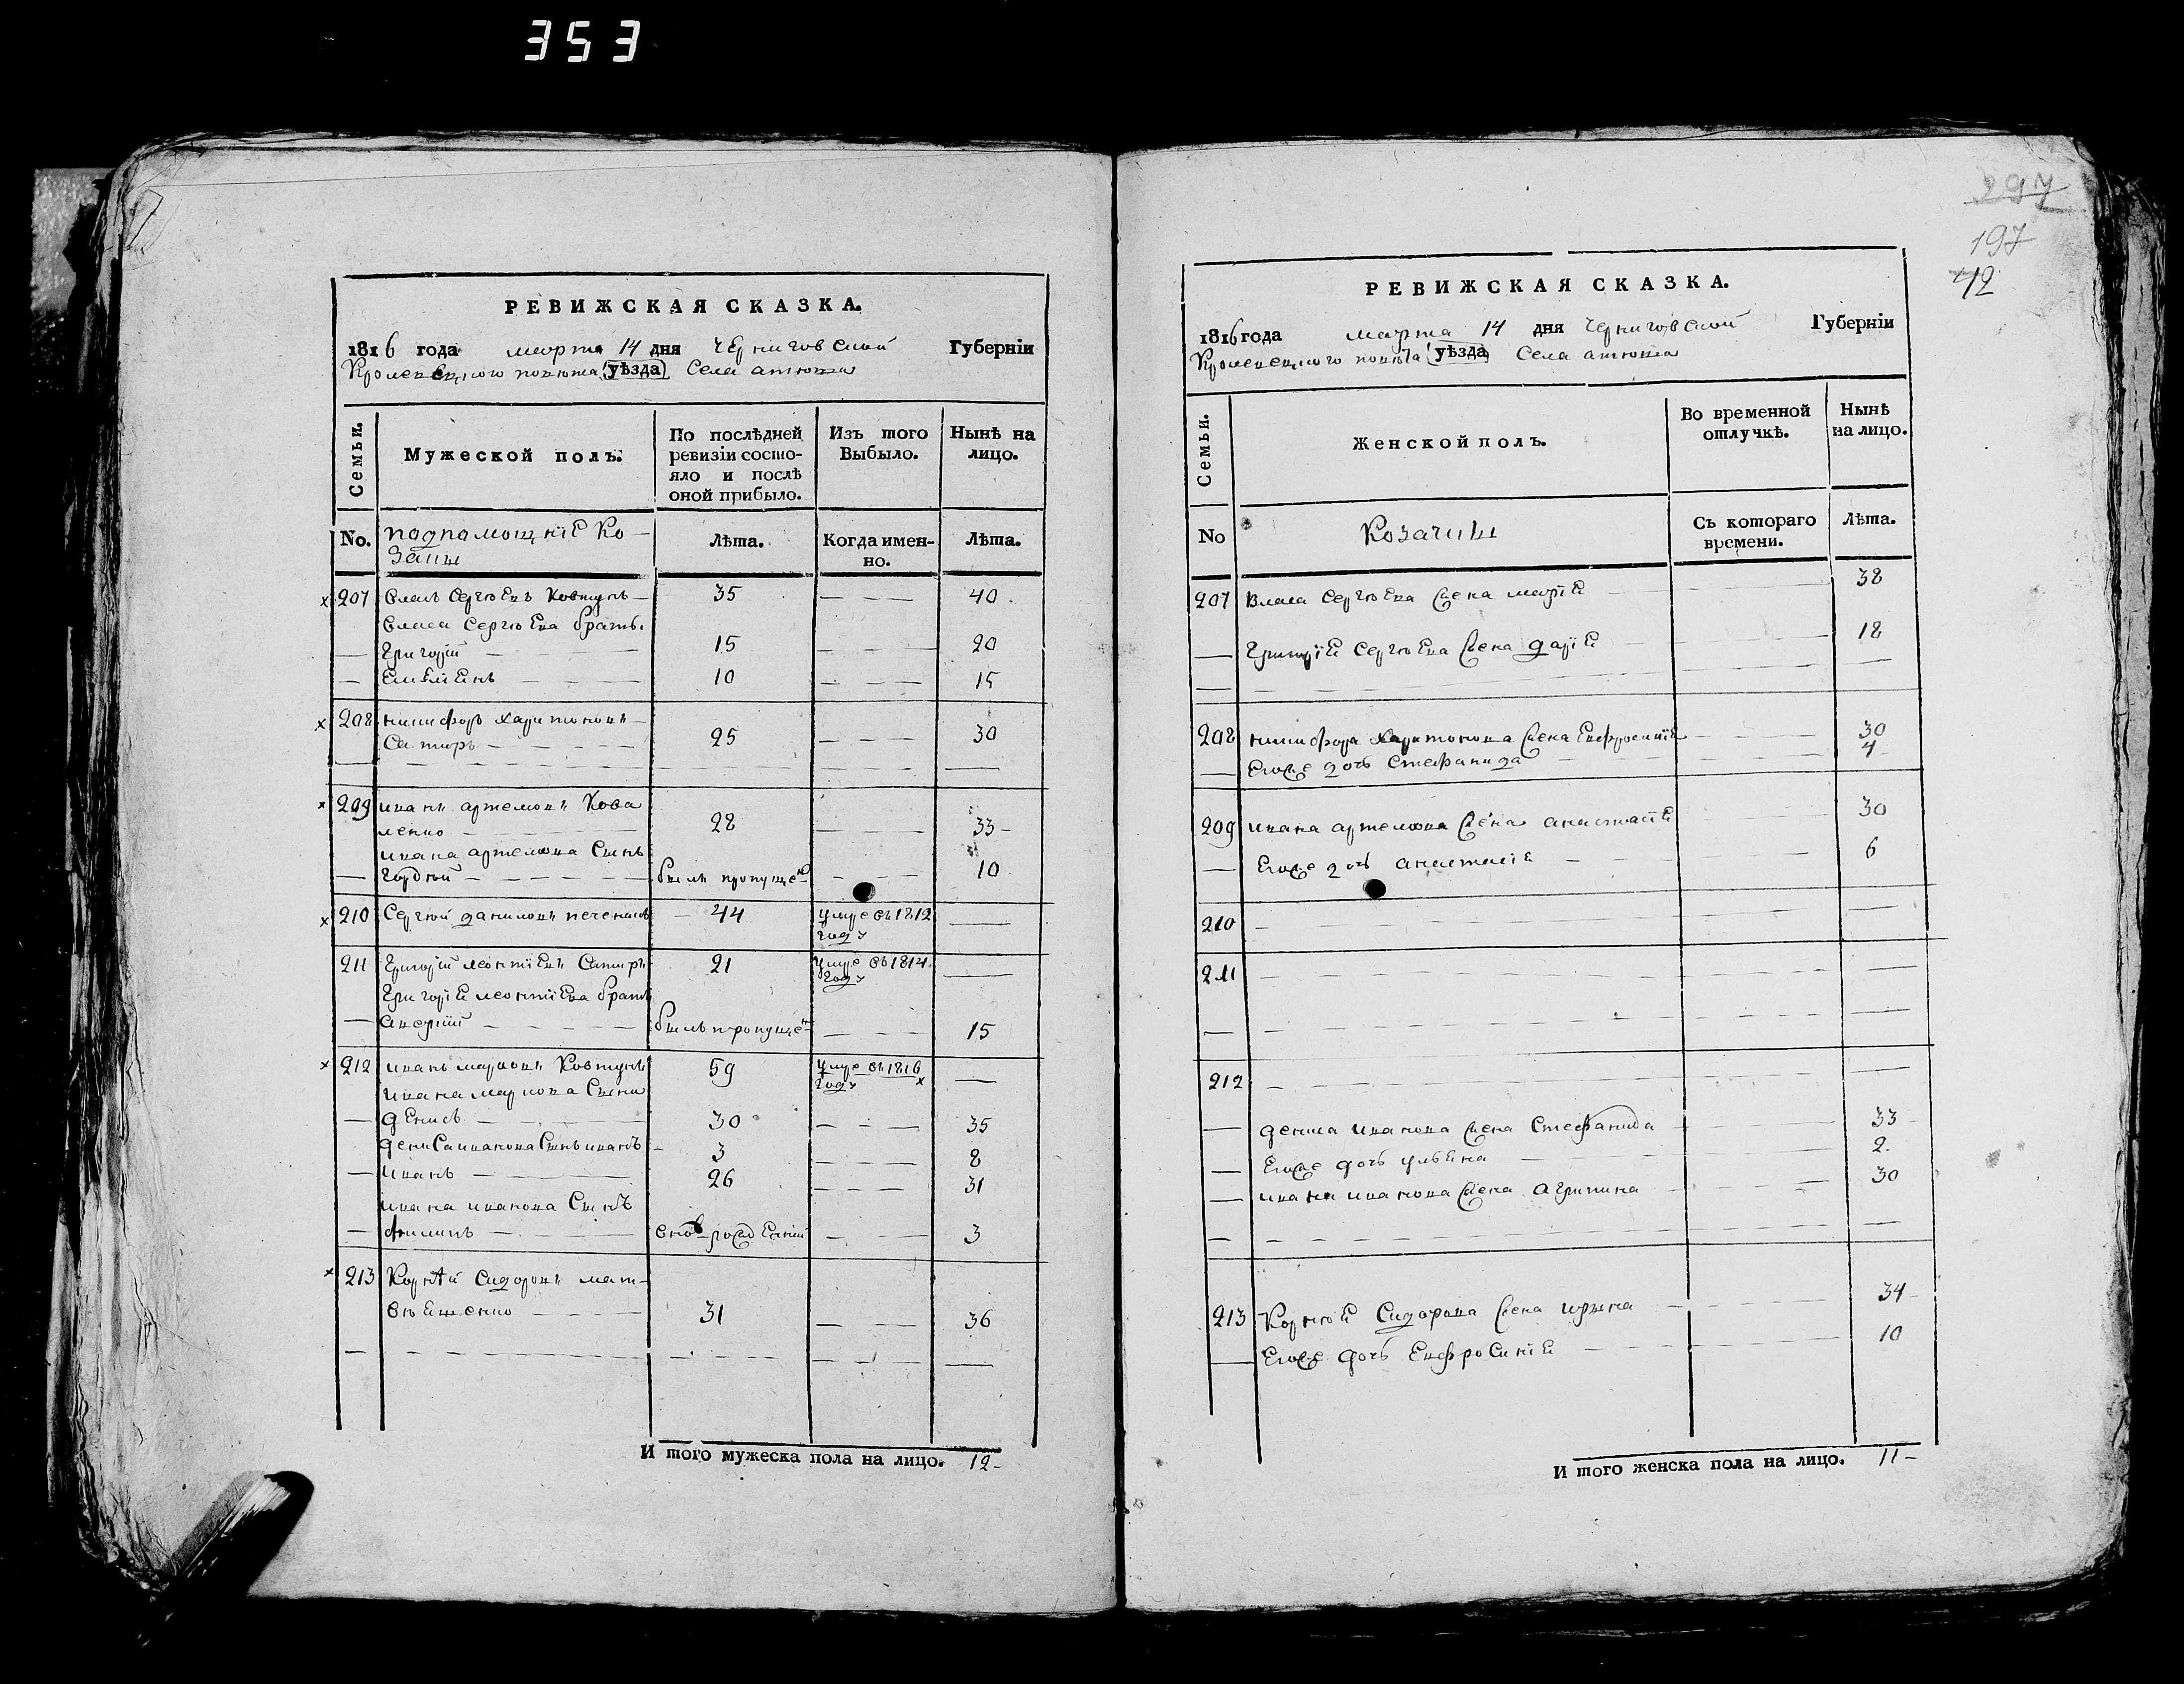 353
РЕВИЖСКАЯ СКАЗКА.
1816 года марта 14 дня Черниговской Губернїи
Кролевецкого повѣта (уѣзда) Села атюши
Семьи.
Мужеской полъ.
По послѣдней ревизїи состояло и послѣ оной прибыло.
Изъ того Выбыло.
Нынѣ на лицо.
No.
подпамощнїе Козаки
Лѣта.
Когда именно.
Лѣта.
207 Власъ Сергѣевъ Ковтунъ 35 40
Власа Сергѣева братъ.
Григорїй 15 20
Емелиенъ 10 15
208 никифоръ Харитоновъ
Ситиръ 25 30
209 иванъ артемовъ Кова
ленко 28 33
ивана артемова Сынъ
гордѣй былъ пропущен 10
210 Сергѣй даниловъ 44 умре въ 1812 году
211 Григорїй леонтїевъ Ситиръ 21 умре въ 1814 году
Григорїя леонтїева братъ
былъ пропущен 15
212 иванъ марковъ Ковтунъ 59 умре въ 1816 году
ивана маркова Сыны
денисъ 30 35
дениса иванова Сынъ иванъ 3 8
иванъ 26 31
ивана иванова Сынъ
филипъ вновьрожденнїй 3
213 Корнѣй Сидоровъ мат-
вѣешенко 31 36
И того мужеска пола на лицо. 12
297
197
42
РЕВИЖСКАЯ СКАЗКА.
1816 года марта 14 дня Черниговской Губернїи
Кролевецкого повѣта (уѣзда) Села атюши
Семьи.
Женской полъ.
Во временной отлучкѣ.
Нынѣ на лицо.
No
Козачки
Съ котораго времени.
Лѣта.
207 Власа Сергѣева жена марїя 38
Григорїя Сергѣева жена дарїя 18
208 никифора Харитонова жена Евфросинїя 30
Егоже дочь Стефанида 4
209 ивана артемова жена анастасїя 30
Егоже дочь анастасїя 6
210
211
212
дениса иванова жена Стефанида 33
Егоже дочь ульяна 2
ивана иванова жена агрипина 30
213 Корнѣя Сидорова жена ирына 34
Егоже дочь Евфросинїя 10
И того женска пола на лицо. 11